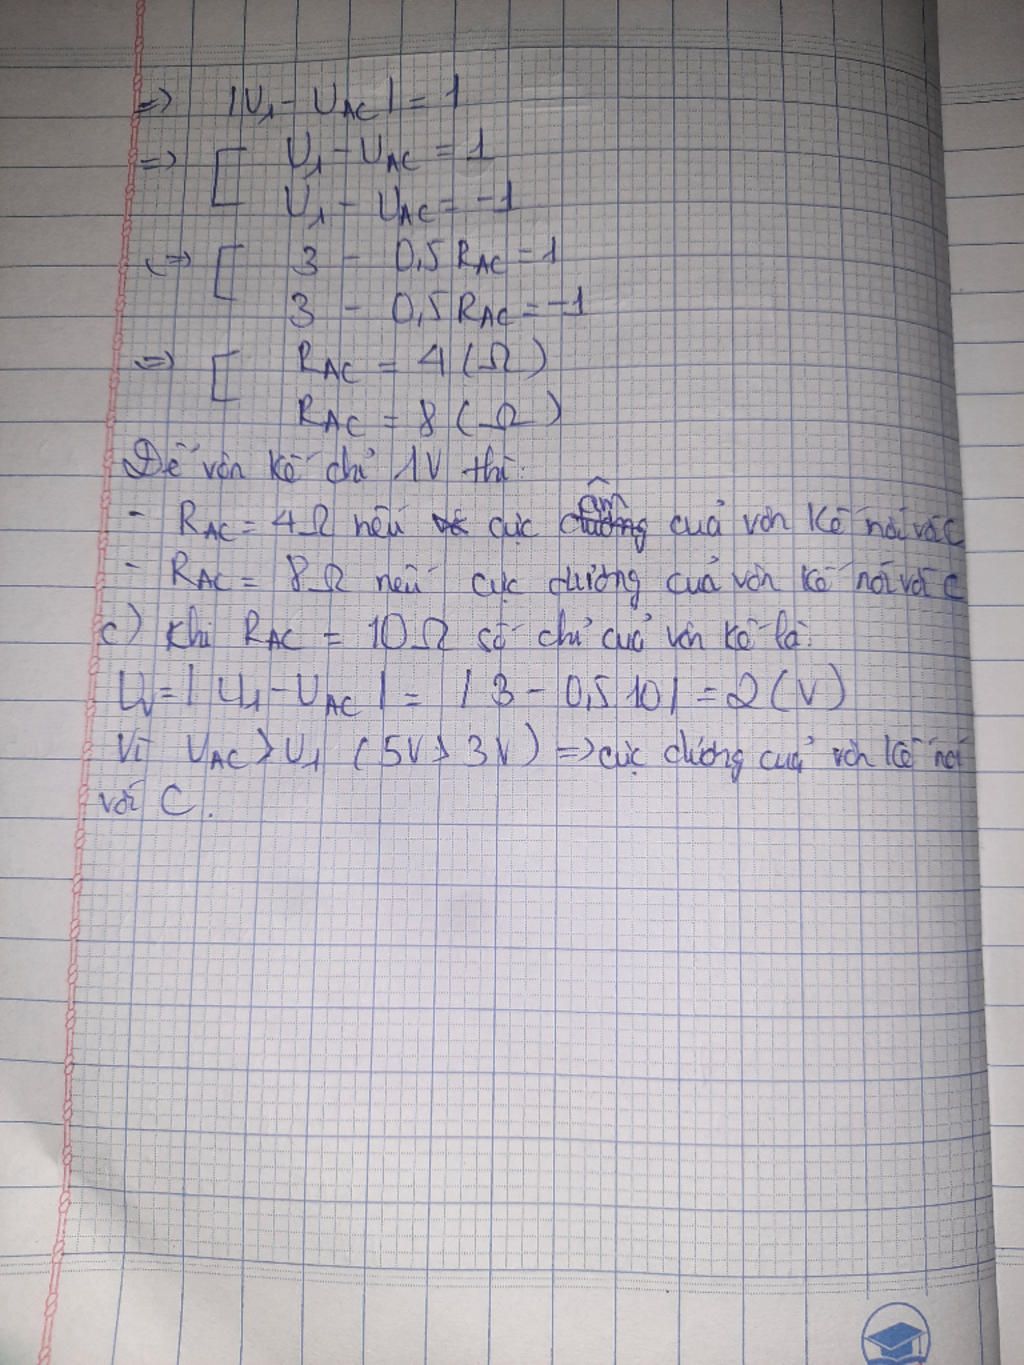 => |U₁ - U_AC| = 1
=> [ U₁ - U_AC = 1
U₁ - U_AC = -1
<=> [ 3 - 0,5 R_AC = 1
3 - 0,5 R_AC = -1
=> [ R_AC = 4 (Ω)
R_AC = 8 (Ω)
Để vôn kế chỉ 1V thì:
- R_AC = 4Ω nếu cực âm của vôn kế nối với C
- R_AC = 8Ω nếu cực dương của vôn kế nối với C
c) Khi R_AC = 10Ω số chỉ của vôn kế là:
U_V = |U₁ - U_AC| = |3 - 0,5.10| = 2 (V)
Vì U_AC > U₁ (5V > 3V) => cực dương của vôn kế nối
với C.